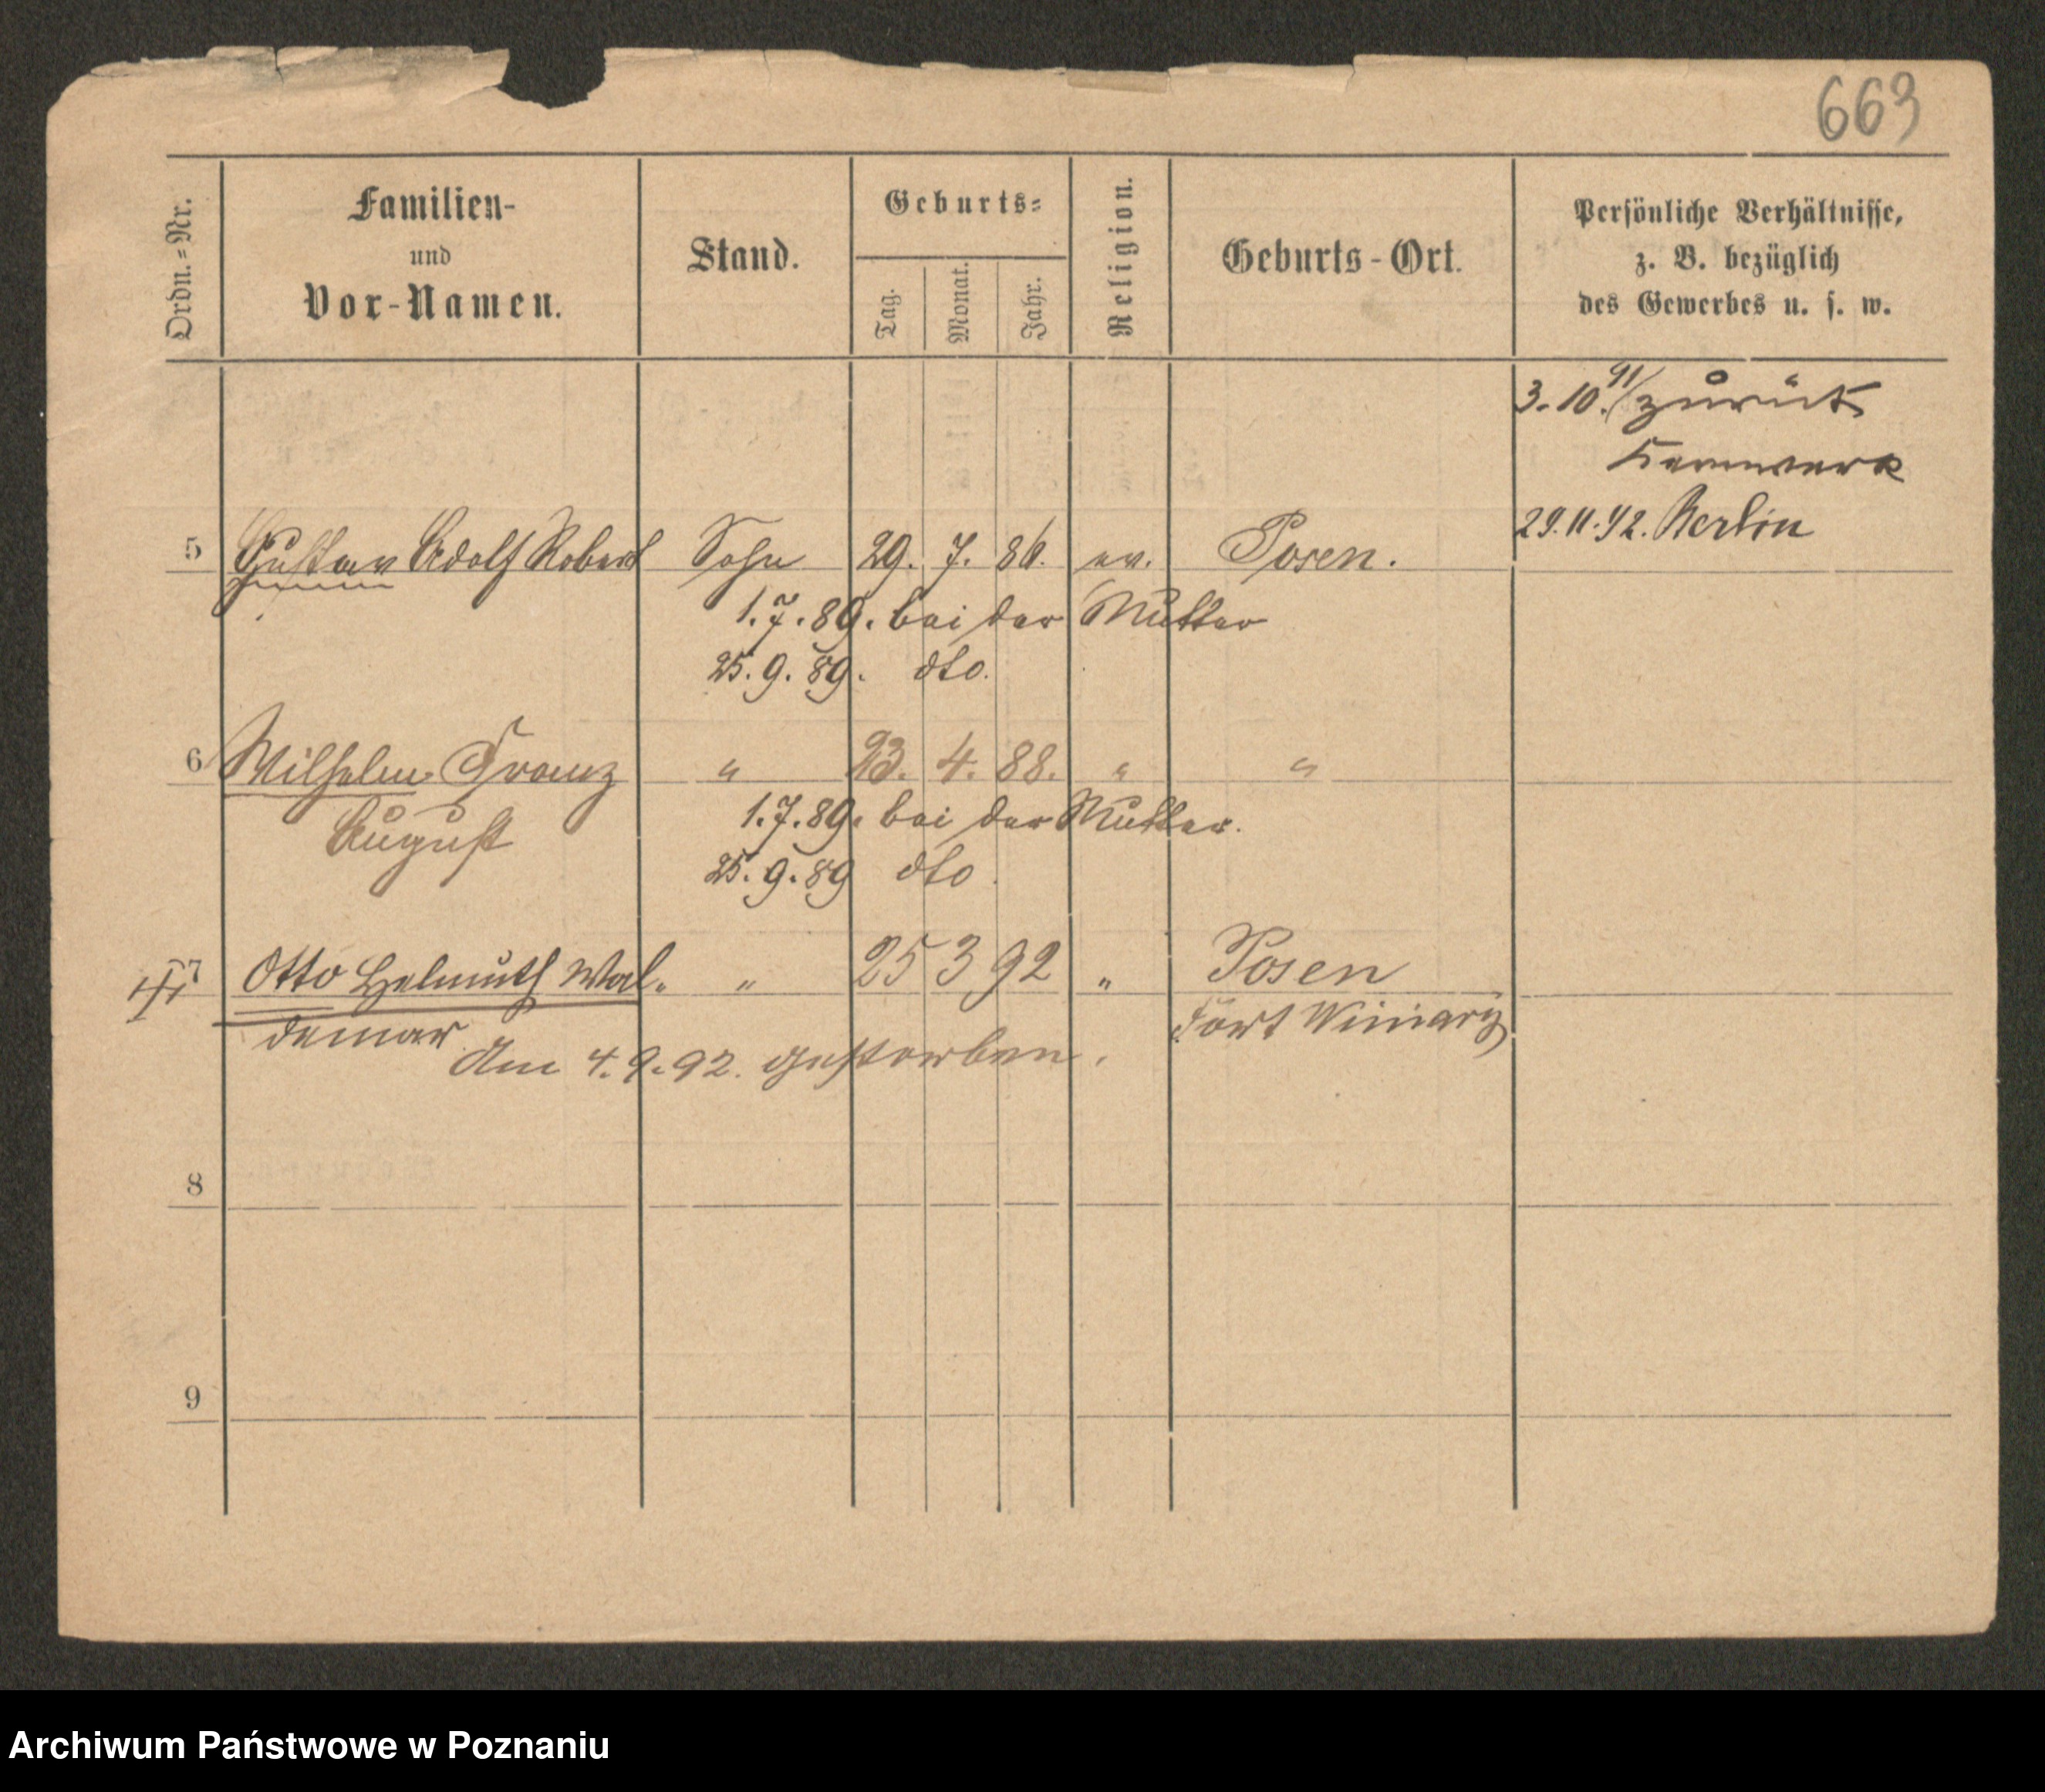 663
Ordn.-Nr.
Familien-
und
Vor-Namen.
Stand.
Geburts-
Tag.
Monat.
Jahr.
Religion.
Geburts-Ort.
Persönliche Verhältnisse,
z. B. bezüglich
des Gewerbes u. s. w.
3. 10. 91/ zurück
Kernwerk
29.11.92. Berlin
5 Gustav Adolf Robert Sohn 29. 7. 86. ev. Posen.
1.7.89. bei der Mutter
25.9.89. dto.
6 Wilhelm Franz " 23. 4. 88. " "
1.7.89. bei der Mutter.
August
25.9.89 dto.
7 Otto Helmuth Wal- " 25 3 92 " Posen
demar Fort Winiary
Am 4.9.92. gestorben.
8
9
Archiwum Państwowe w Poznaniu